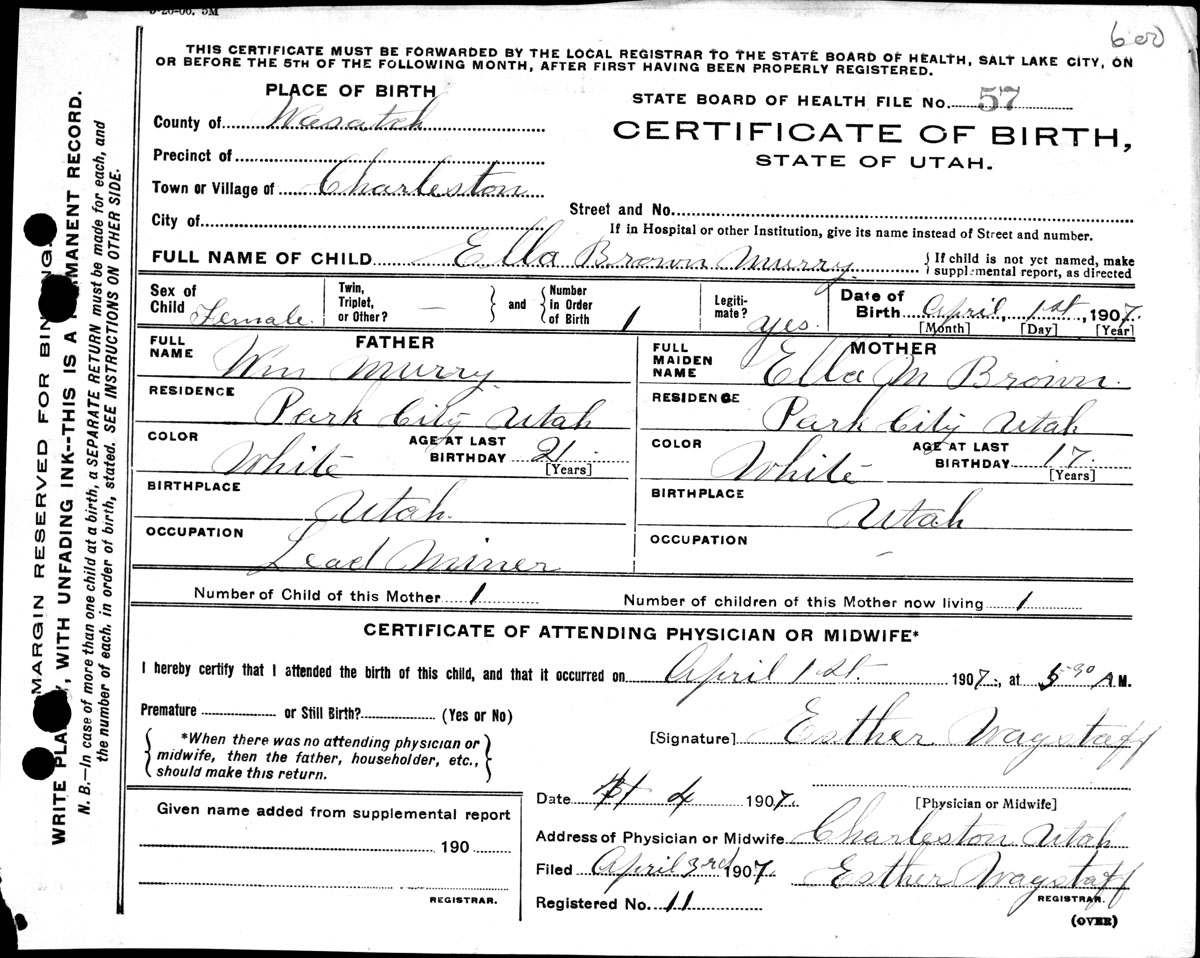 3-26-06. 5M
600
THIS CERTIFICATE MUST BE FORWARDED BY THE LOCAL REGISTRAR TO THE STATE BOARD OF HEALTH, SALT LAKE CITY, ON
OR BEFORE THE 5TH OF THE FOLLOWING MONTH, AFTER FIRST HAVING BEEN PROPERLY REGISTERED.
PLACE OF BIRTH
STATE BOARD OF HEALTH FILE No. 57
County of Wasatch
CERTIFICATE OF BIRTH,
STATE OF UTAH.
Precinct of
Town or Village of Charleston
Street and No.
City of
If in Hospital or other Institution, give its name instead of Street and number.
FULL NAME OF CHILD Ella Brown Murry
If child is not yet named, make
supplemental report, as directed
Sex of Child Female
Twin, Triplet, or Other? —
and
Number in Order of Birth 1
Legiti-mate? yes.
Date of Birth April, 1st, 1907.
[Month] [Day] [Year]
FATHER
FULL NAME Wm Murry
RESIDENCE Park City Utah
COLOR White
AGE AT LAST BIRTHDAY 21
[Years]
BIRTHPLACE Utah.
OCCUPATION Lead Miner
MOTHER
FULL MAIDEN NAME Ella M Brown.
RESIDENCE Park City Utah
COLOR White
AGE AT LAST BIRTHDAY 17.
[Years]
BIRTHPLACE Utah
OCCUPATION –
Number of Child of this Mother 1
Number of children of this Mother now living 1
CERTIFICATE OF ATTENDING PHYSICIAN OR MIDWIFE*
I hereby certify that I attended the birth of this child, and that it occurred on April 1st. 1907, at 5 30 A.M.
Premature or Still Birth? (Yes or No)
[Signature] Esther Wagstaff
*When there was no attending physician or
midwife, then the father, householder, etc.,
should make this return.
Date 4 1907.
[Physician or Midwife]
Given name added from supplemental report
190
REGISTRAR.
Address of Physician or Midwife Charleston Utah
Filed April 3rd 1907. Esther Wagstaff
REGISTRAR.
Registered No. 11
(OVER)
MARGIN RESERVED FOR BINDING.
WRITE PLAINLY, WITH UNFADING INK--THIS IS A PERMANENT RECORD.
N. B.—In case of more than one child at a birth, a SEPARATE RETURN must be made for each, and
the number of each, in order of birth, stated. SEE INSTRUCTIONS ON OTHER SIDE.